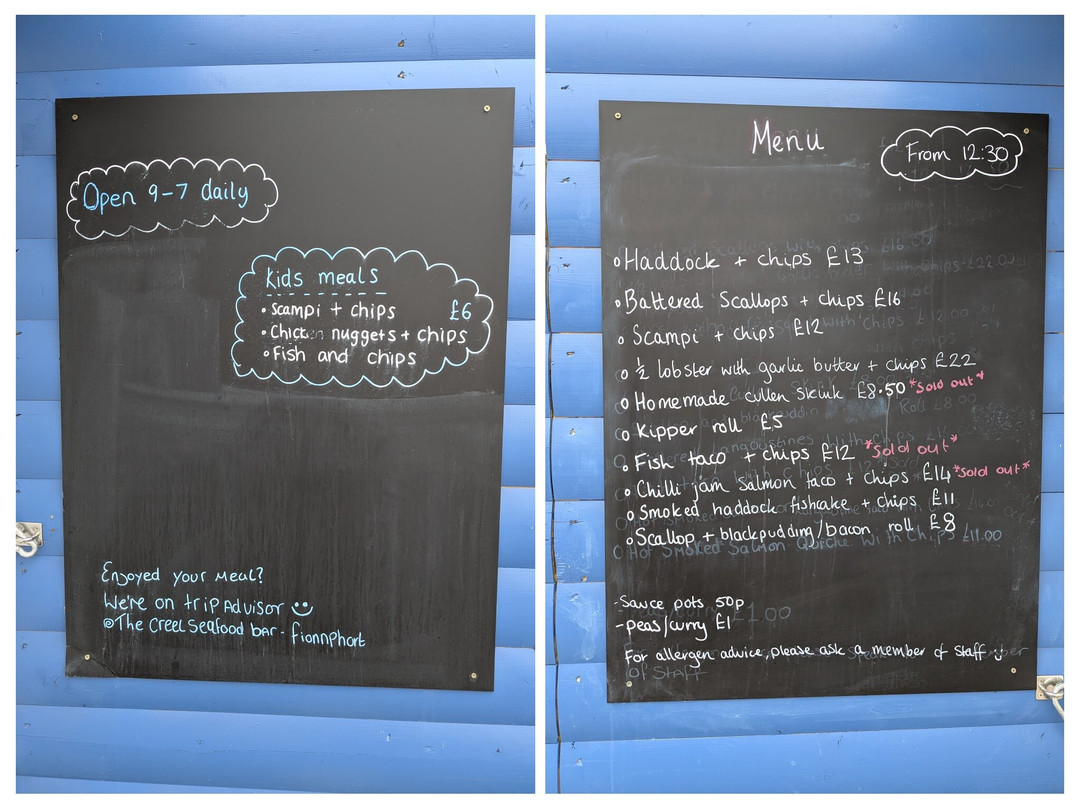 Open 9-7 daily
Kids meals
• Scampi + chips £6
• Chicken nuggets + chips
• Fish and chips
Enjoyed your meal?
We're on trip Advisor
@The Creel Seafood bar - fionnphort
Menu
From 12:30
Haddock + chips £13
Battered Scallops + chips £16
Scampi + chips £12
½ lobster with garlic butter + chips £22
Homemade cullen skink £8.50 *Sold out*
Kipper roll £5
Fish taco + chips £12 *Sold out*
Chilli jam salmon taco + chips £14 *Sold out*
Smoked haddock fishcake + chips £11
Scallop + blackpudding/bacon roll £8
Hot Smoked Salmon Quiche With Chips £11.00
-Sauce pots 50p
-peas/curry £1
£1.00
For allergen advice, please ask a member of staff
of Staff